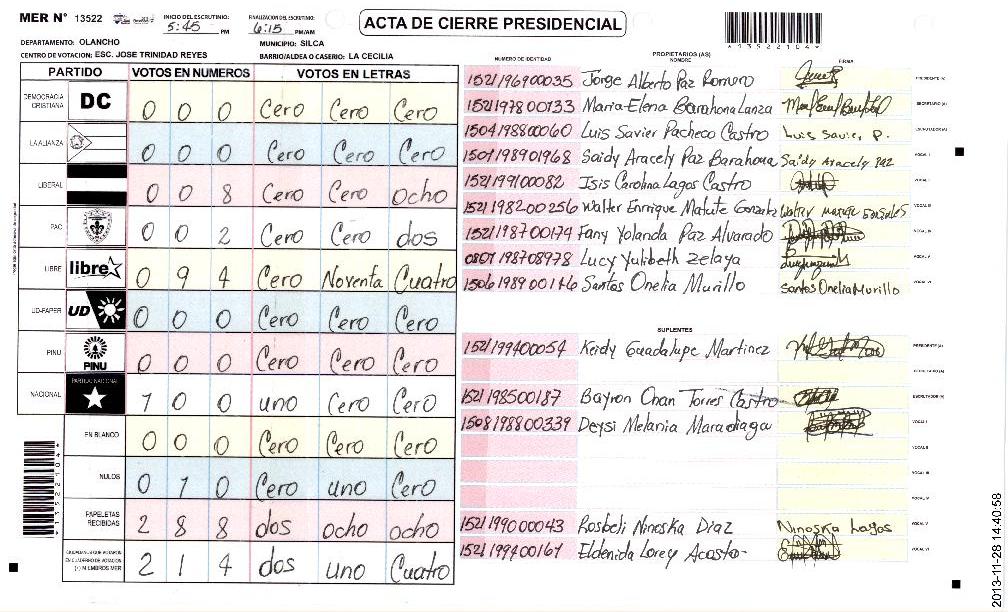 MER N° 13522
INICIO DEL ESCRUTINIO: 5:45 PM
FINALIZACION DEL ESCRUTINIO: 6:15 PM/AM
ACTA DE CIERRE PRESIDENCIAL
*13522104*
DEPARTAMENTO: OLANCHO
MUNICIPIO: SILCA
CENTRO DE VOTACION: ESC. JOSE TRINIDAD REYES
BARRIO/ALDEA O CASERIO: LA CECILIA
PARTIDO VOTOS EN NUMEROS VOTOS EN LETRAS
DEMOCRACIA CRISTIANA DC 0 0 0 Cero Cero Cero
LA ALIANZA 0 0 0 Cero Cero Cero
LIBERAL 0 0 8 Cero Cero ocho
PAC 0 0 2 Cero Cero dos
LIBRE libre 0 9 4 Cero Noventa Cuatro
UD-FAPER UD 0 0 0 Cero Cero Cero
PINU PINU 0 0 0 Cero Cero Cero
NACIONAL PARTIDO NACIONAL 1 0 0 uno Cero Cero
EN BLANCO 0 0 0 Cero Cero Cero
NULOS 0 1 0 Cero uno Cero
PAPELETAS RECIBIDAS 2 8 8 dos ocho ocho
CIUDADANOS QUE VOTARON EN CUADERNO DE VOTACION (+) MIEMBROS MER 2 1 4 dos uno Cuatro
*13522104*
PROPIETARIOS (AS)
NUMERO DE IDENTIDAD NOMBRE FIRMA
1521196900035 Jorge Alberto Paz Romero PRESIDENTE (A)
1521197800133 Maria Elena Barahona Lanza SECRETARIO (A)
1504198800060 Luis Savier Pacheco Castro Luis Savier P. ESCRUTADOR (A)
1501198901968 Saidy Aracely Paz Barahona Saidy Aracely Paz VOCAL I
1521199100082 Isis Carolina Lagos Castro VOCAL II
1521198200256 Walter Enrrique Matute Gonzalz VOCAL III
1521198700174 Fany Yolanda Paz Alvarado VOCAL IV
0801198708978 Lucy Yulibeth Zelaya VOCAL V
1506198900146 Santos Onelia Murillo Santos Onelia Murillo VOCAL VI
SUPLENTES
1521199400054 Keidy Guadalupe Martinez PRESIDENTE (A)
SECRETARIO (A)
1521198500187 Bayron Chan Torres Castro ESCRUTADOR (A)
1508198800339 Deysi Melania Maradiaga VOCAL I
VOCAL II
VOCAL III
VOCAL IV
1521199000043 Rosbeli Ninoska Diaz Ninoska Lagos VOCAL V
1521199400167 Eldenida Lorey Acosta VOCAL VI
2013-11-28 14:40:58